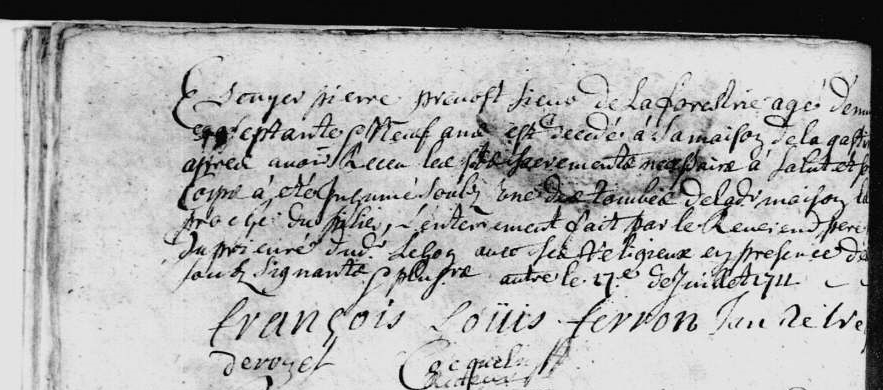 Escuyer pierre prevost sieur de laforestrie agé denv
septante & Neuf ans est decedé a sa maison de la gast
apres avoir Receu les sts sacrements necessaire a salut et s
Corps a eté Inhumé soubz une des tombes de lad maison
proche du pilier, L'enterrement fait par le Reverend pere
du prieuré dud. Lehon avec ses Religieux en presence de
soubz signants & plusrs autre le 17.e de Juillet 1711
François Loüis ferron Jan
derozel Cocquelin
Recteur